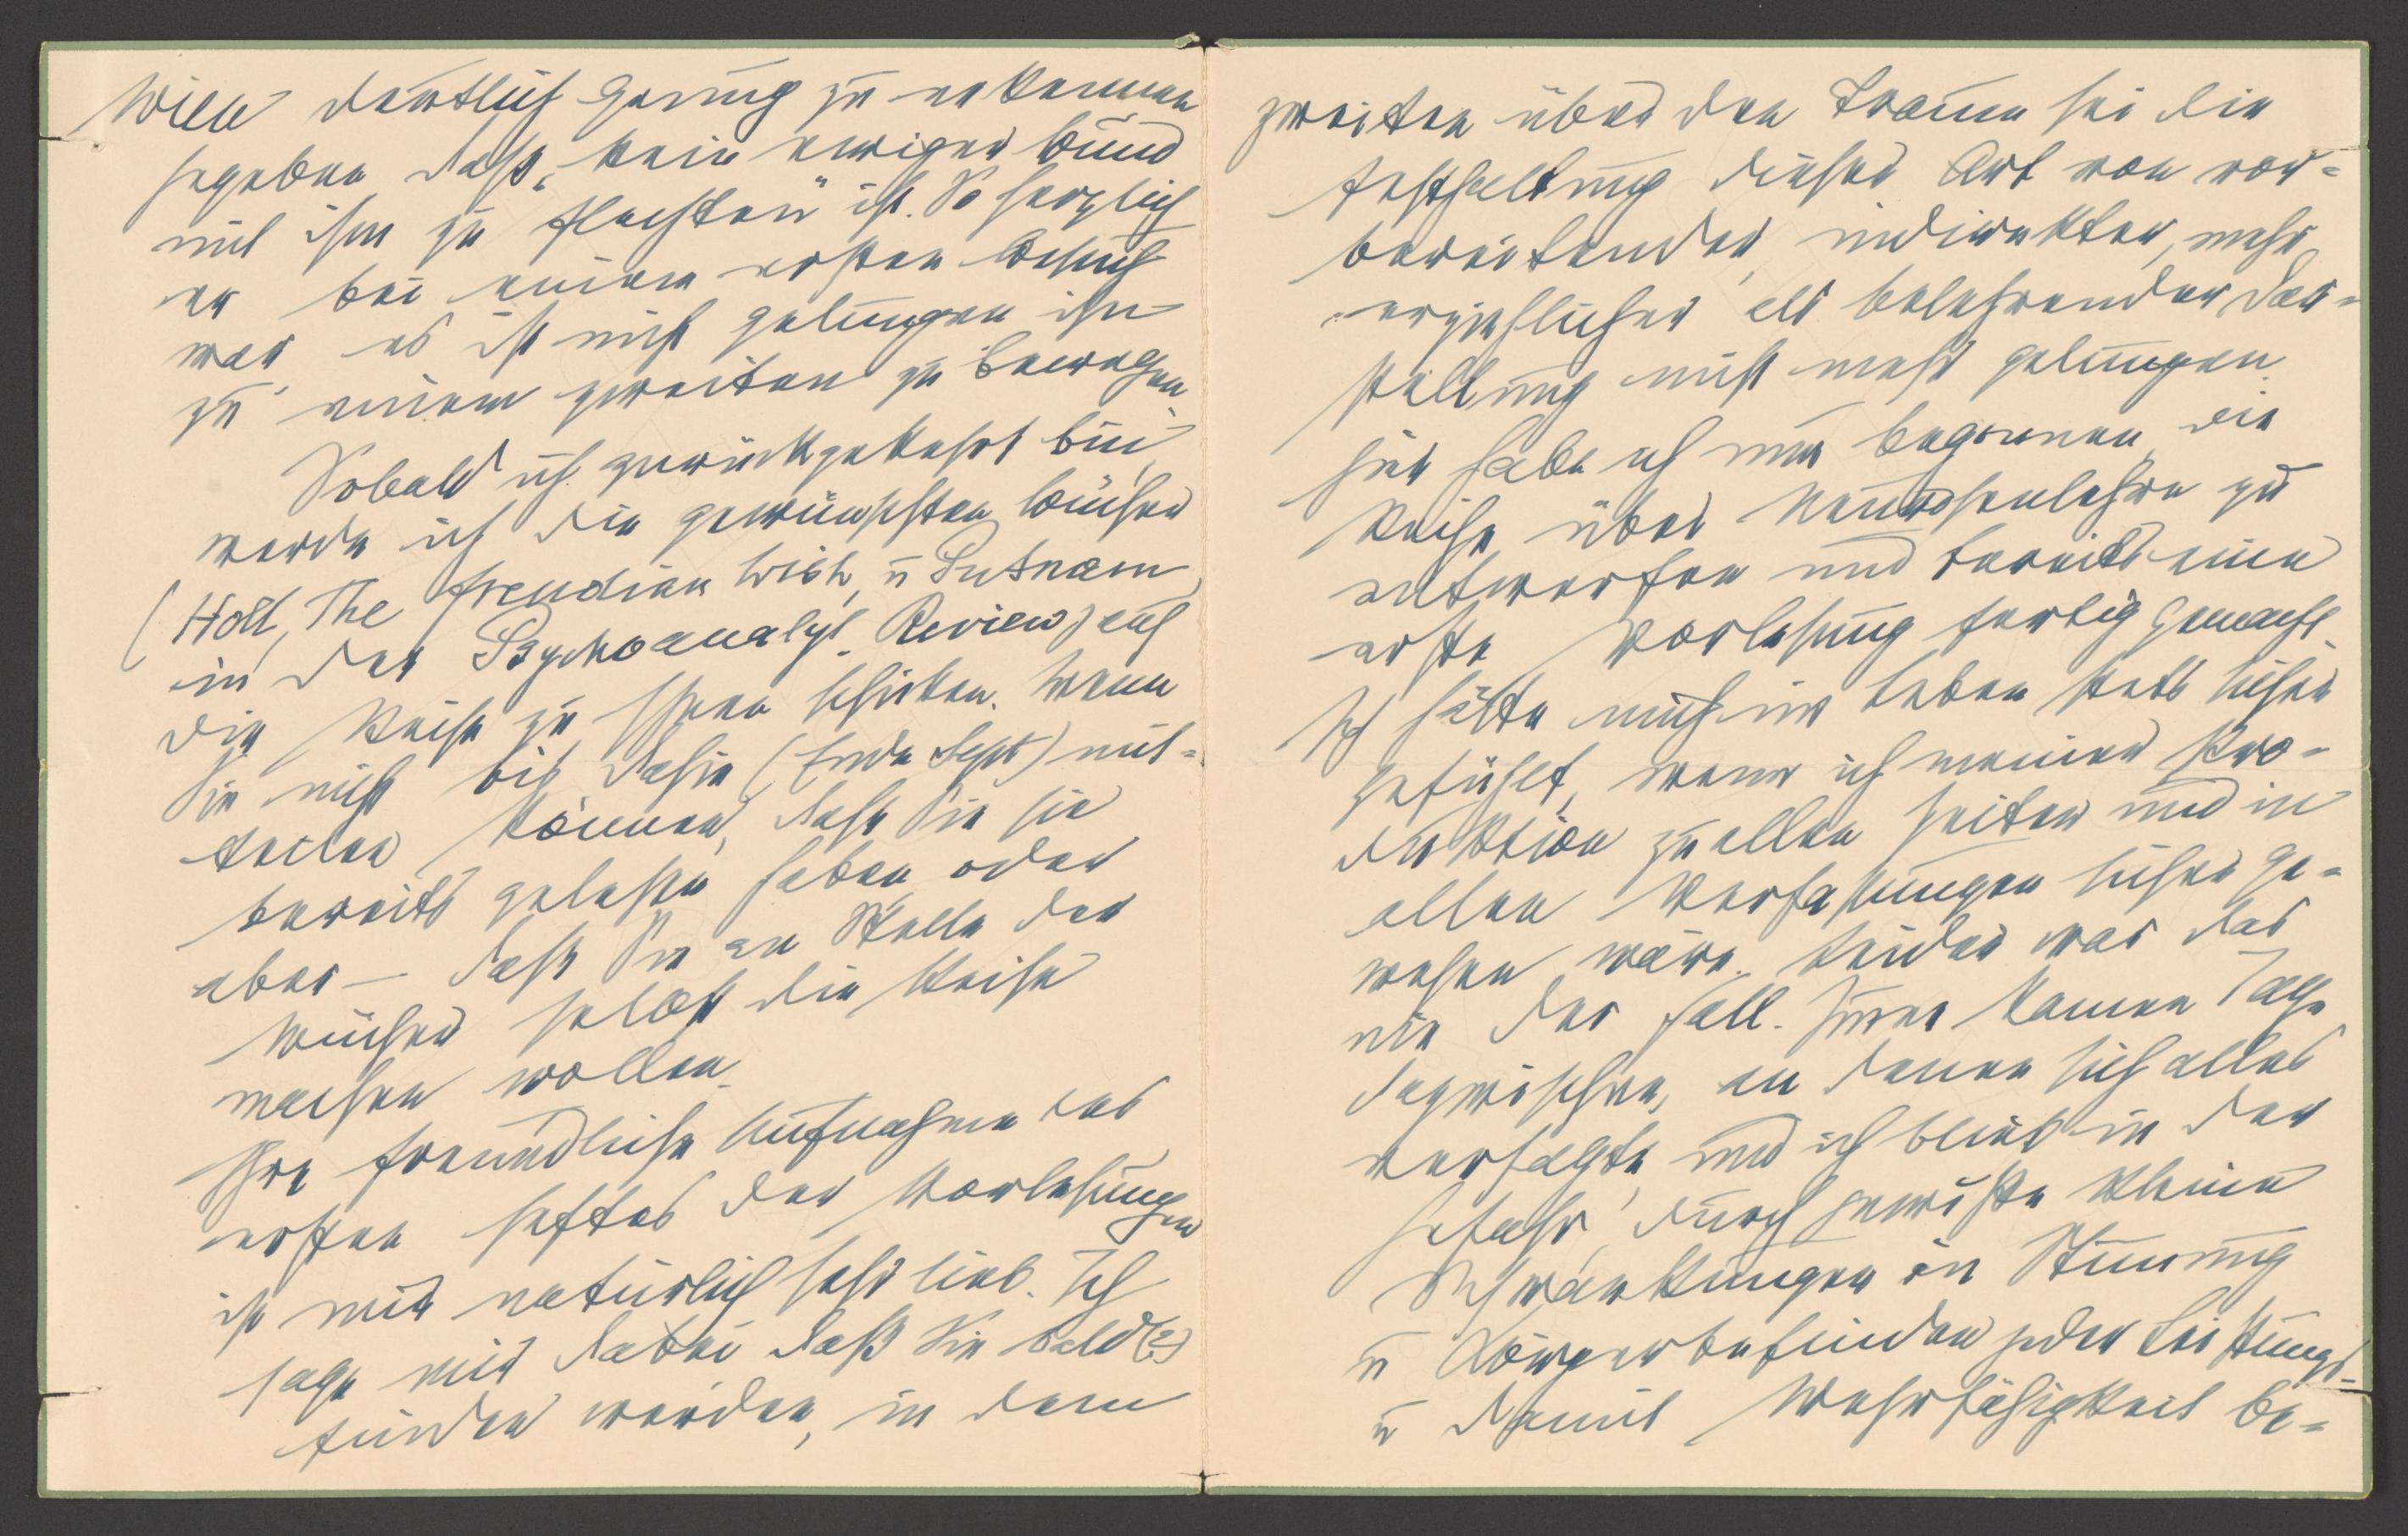 Wien deutlich genug zu erkennen
gegeben, daß „kein ewiger Bund
mit ihm zu flechten“ ist. So herzlich
er bei einem ersten Besuch
war, es ist nicht gelungen ihn
zu einem zweiten zu bewegen.
Sobald ich zurückgekehrt bin,
werde ich die gewünschten Bücher
(Holt, The freudian Wish, u Putnam
in der Psychoanalyt. Review) auf
die Reise zu Ihnen schicken. Wenn
Sie nicht bis dahin (Ende Sept) mit=
teilen können, daß Sie sie
bereits gelesen haben oder
aber – daß Sie an Stelle der
Bücher selbst die Reise
machen wollen.
Ihre freundliche Aufnahme des
ersten Heftes der Vorlesungen
ist mir natürlich sehr lieb. Ich
sage mir dabei daß Sie bald (?)
finden werden, in dem
zweiten über den Traum sei die
Festhaltung dieser Art von vor=
bereitender, indirekter, mehr
erziehlicher als belehrender Dar=
stellung nicht mehr gelungen.
Hier habe ich nun begonnen, die
Reihe über Neurosenlehre zu
entwerfen und bereits eine
erste Vorlesung fertig gemacht.
Ich hätte mich im Leben stets sicher
gefühlt, wenn ich meiner Pro=
duktion zu allen Zeiten und in
allen Verfassungen sicher ge=
wesen wäre. Leider war das
nie der Fall. Immer kamen Tage
dazwischen, an denen sich alles
versagte, und ich blieb in der
Gefahr, durch gewisse kleine
Schwankungen in Stimmung
u Körperbefinden jeder Leistungs=
u damit Wehrfähigkeit be=